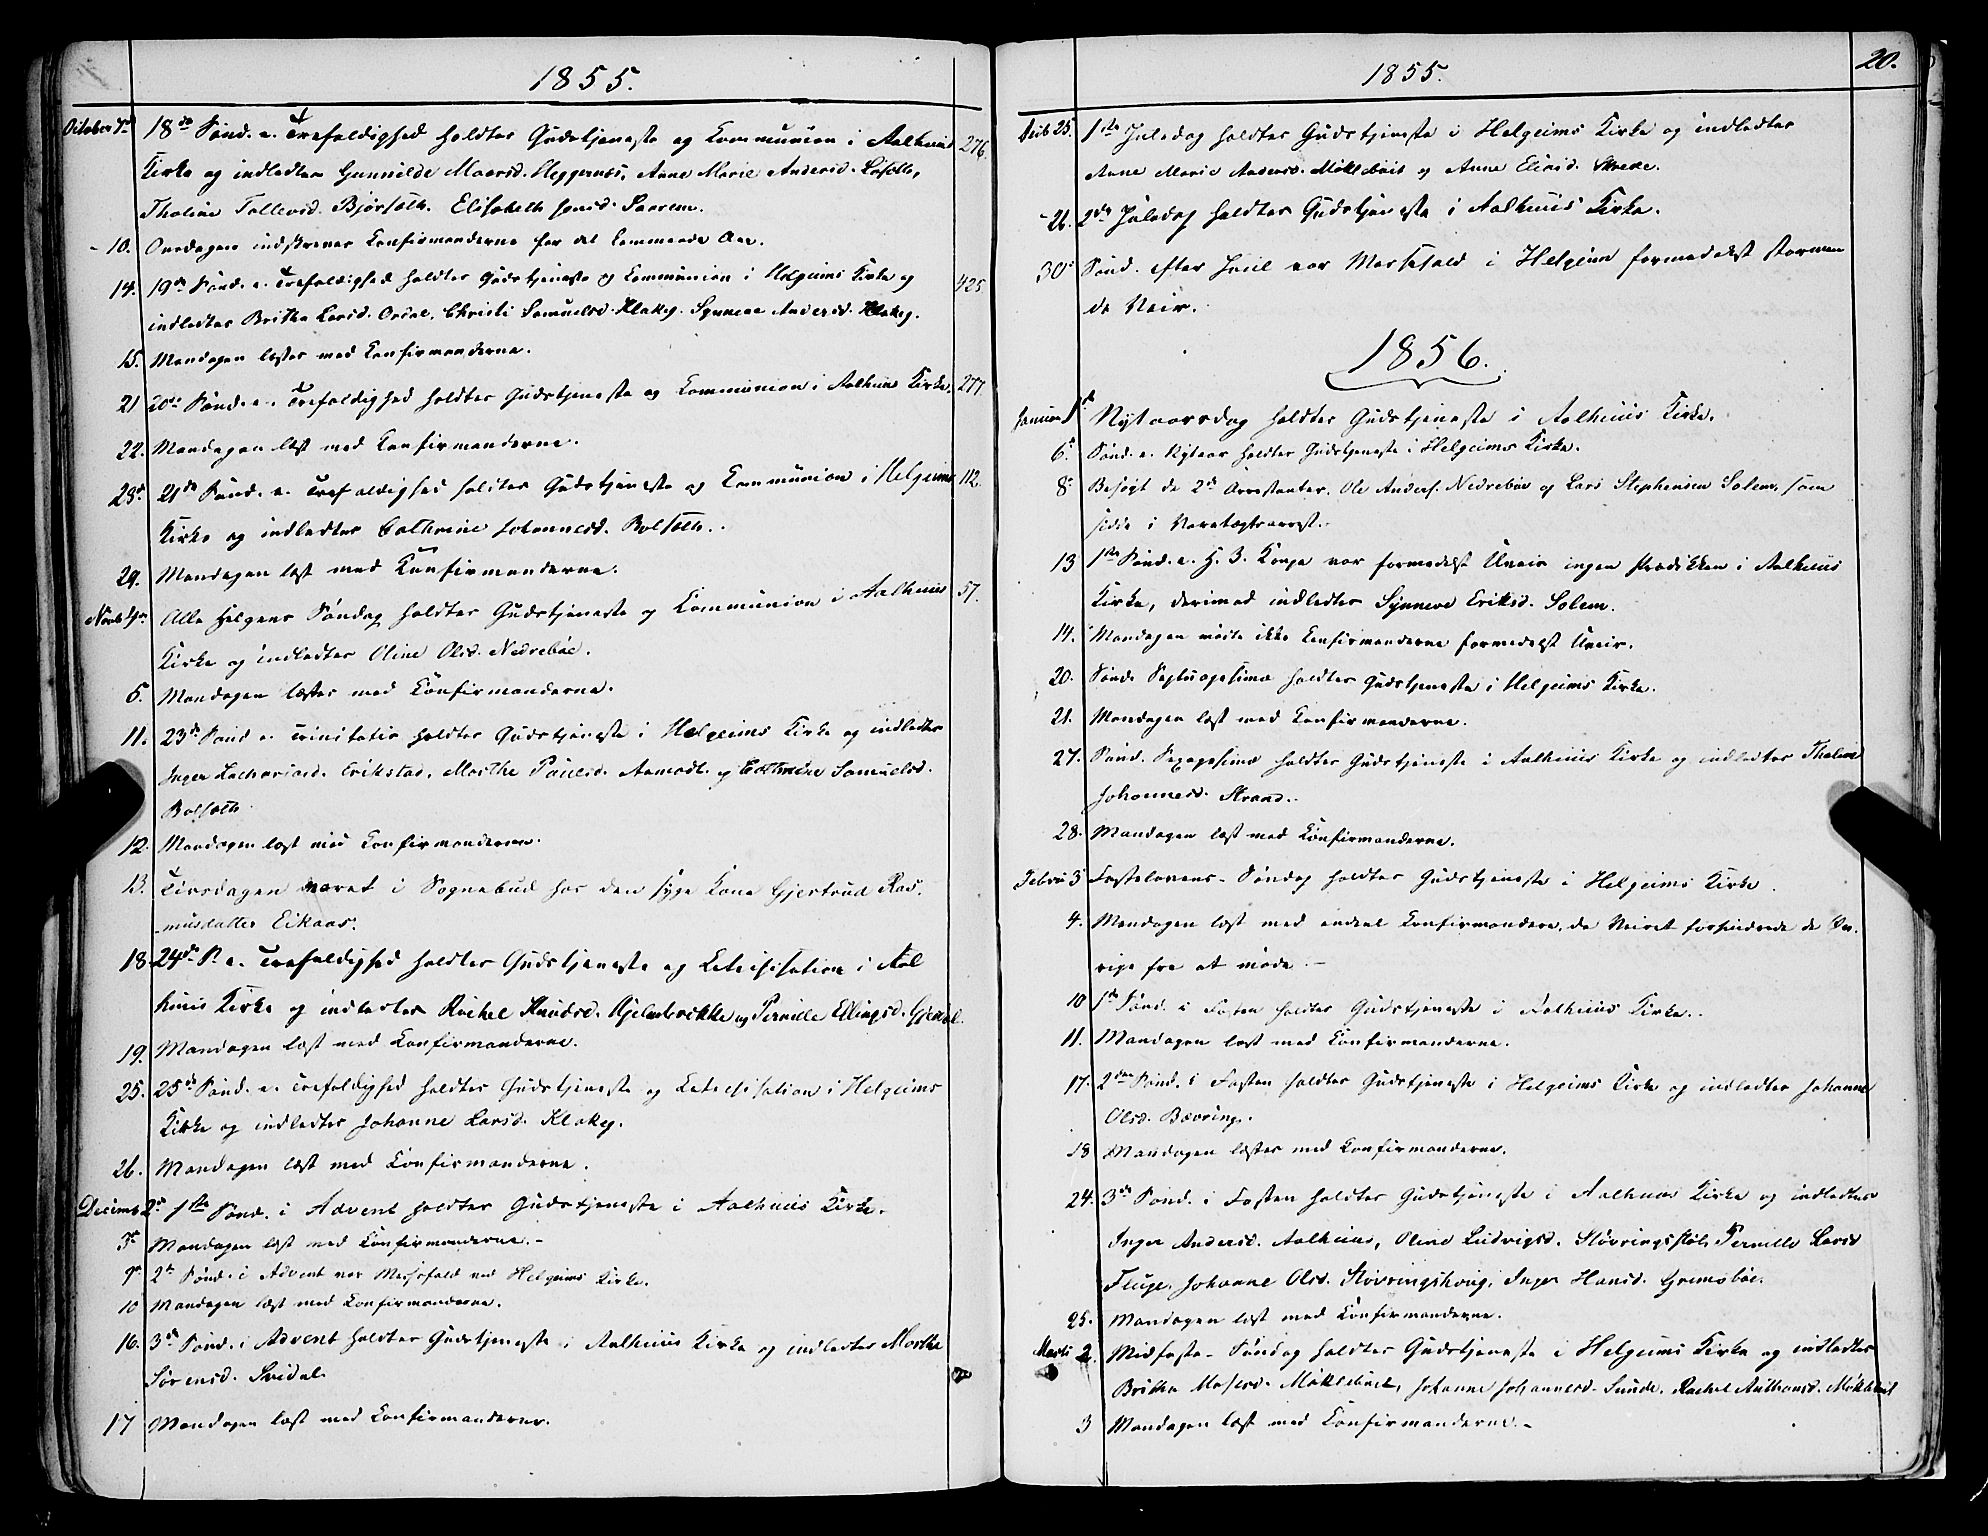 1855.
October 7de 18de Sønd. e. Trefoldighed holdtes Gudstjeneste og Communion i Aalhuus 276.
Kirke og indledtes Gunnilde Moersd. Heggernæs, Anne Marie Andersd.
Tholine Tollevsd. Bjørsæth. Elisabeth Jensd.
- 10. Onsdagen indskreves Confirmanderne for det kommende Aar.
14. 19de Sønd. e. Trefoldighed holdtes Gudstjeneste og Communion i Helgeims Kirke og 425.
indledtes Britha Larsd. Ordal, Christi Samuelsd. Klakeg. Synneve Andersd. Klakeg.
15. Mandagen læstes med Confirmanderne.
21 20de Sønd. e. Trefoldighed holdtes Gudstjeneste og Communion i Aalhuus Kirke. 277.
22. Mandagen læst med Confirmanderne.
28de 21de Sønd. e. Trefoldighed holdtes Gudstjeneste og Communion i Helgeims 112.
Kirke og indledtes Cathrine Johannesd. Bolsæth.
29. Mandagen læst med Confirmanderne.
Novb 4de. Alle Helgens Søndag holdtes Gudstjeneste og Communion i Aalhuus 57.
Kirke og indledtes Oline Olsd. Nedrebøe.
5. Mandagen læstes med Confirmanderne.
11. 23de Sønd e. Trinitatis holdtes Gudstjeneste i Helgeims Kirke og indledtes
Inger Zachariasd. Erikstad, Marthe Poulsd. Aamodt. og Cathrine Samuelsd.
Bolsæth
12. Mandagen læst med Confirmanderne.
13. Tirsdagen været i Sognebud hos den syge Kone Gjertrud Ras-
musdatter Eikaas.
18. 24de S. e. Trefoldighed holdtes Gudstjeneste og Catechisation i Aal
huus Kirke og indledtes Rachel Knudsd. Hjelmbrekke og Pernille Ellingsd.
19. Mandagen læst med Confirmanderne.
25. 25de Sønd. e. Trefoldighed holdtes Gudstjeneste og Catechisation i Helgeims
Kirke og indledtes Johanne Larsd. Klakeg.
26. Mandagen læst med Confirmanderne.
Decemb 2de 1ste Sønd. i Advent holdtes Gudstjeneste i Aalhuus Kirke.
3de Mandagen læst med Confirmanderne.-
9de 2de Sønd. i Advent var Messefald ved Helgeims Kirke.
10 Mandagen læst med Confirmanderne.
16. 3de Sønd. i Advent holdtes Gudstjeneste i Aalhuus Kirke og indledtes Marthe
Sørensd. Svidal.
17 Mandagen læst med Confirmanderne.
1855.
20.
25. 1ste Juledag holdtes Gudstjeneste i Helgeims Kirke og indledtes
Anne Marie Andersd. Møklebust og Anne Eliasd. Skrede.
- 26. 2den Juledag holdtes Gudstjeneste i Aalhuus Kirke.
30te Sønd. efter Juul var Messefald i Helgeim formedelst stormen
de Veir.
1856.
Januar 1ste Nytaarsdag holdtes Gudstjeneste i Aalhuus Kirke.
6te Sønd. e. Nytaar holdtes Gudstjeneste i Helgeims Kirke.
8de Besøgt de 2de Arrestanter, Ole Anders. Nedrebøe og Lars Stephensen Solem, som
sidde i Varetægtsarrest.
13 1ste Sønd. e. H. 3. Konge var formedelst Uveir ingen Prædikken i Aalhuus
Kirke, derimod indledtes Synneve Eriksd. Solem.
14. Mandagen mødte ikke Confirmanderne formedelst Uveir.
20. Sønd. Septuagesima holdtes Gudstjeneste i Helgeims Kirke.
21. Mandagen læst med Confirmanderne.
27. Sønd. Sexagesima holdtes Gudstjeneste i Aalhuus Kirke og indledtes Tholine
Johannesd. Strand.
28. Mandagen læst med Confirmanderne.
Febru 3 Fastelavens-Søndag holdtes Gudstjeneste i Helgeims Kirke.
4. Mandagen læst med endeel Confirmandere, da Veiret forhindrede de Øv-
rige fra at møde.-
10 1ste Sønd. i Fasten holdtes Gudstjeneste i Aalhuus Kirke.
11. Mandagen læst med Confirmanderne.
17. 2den Sønd. i Fasten holdtes Gudstjeneste i Helgeims Kirke og indledtes Johanne
Olsd. Bævring.
18 Mandagen læstes med Confirmanderne.
24. 3de Sønd. i Fasten holdtes Gudstjeneste i Aalhuus Kirke og indledtes
Inger Andersd. Aalhuus, Oline Ludvigsd. Støvringsstøl, Pernille Larsd
Fluge, Johanne Olsd. Støvringshoug, Inger Hansd. Grimsbøe.
25. Mandagen læst med Confirmanderne.
Marts 2. Midfaste-Søndag holdtes Gudstjeneste i Helgeims Kirke og indledtes
Britha Mosesd. Møklebust, Johanne Johannesd. Sunde, Rachel Anthonsd. Møklebust
3 Mandagen læst med Confirmanderne.-